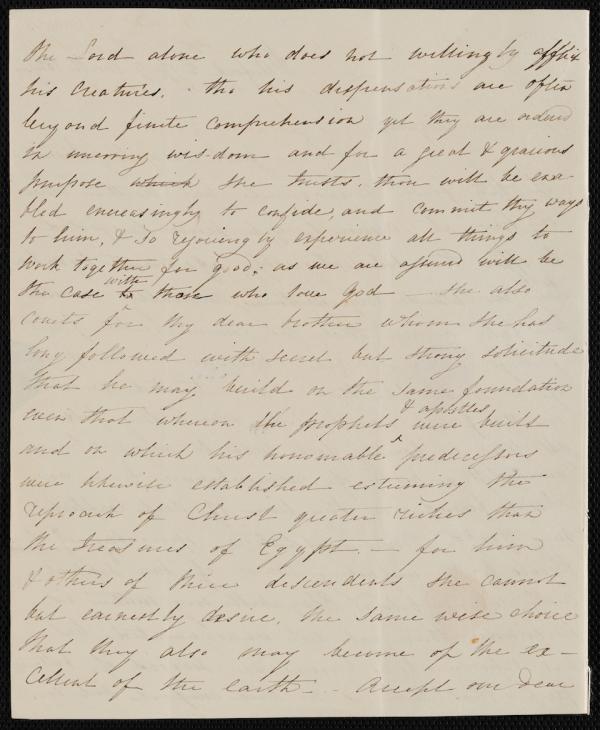 the Lord alone who does not willingly afflict
his creatures. tho his dispensations are often
beyond finite comprehension yet they are ordered
in unerring wisdom and for a great & gracious
purpose which she trusts, thou will be ena-
bled encreasingly to confide, and commit thy ways
to him, & so rejoicingly experience all things to
work together for good, as we are assured will be
the case with those who love god — she also
courts for thy dear brother whom she has
long followed with secret but strong solicitude
that he may build on the same foundation
even that whereon the prophets & apostles were built
and on which his honourable predecessors
were likewise established esteeming the
reproach of Christ greater riches than
the treasures of Egypt. — for him
& others of thine descendents she cannot
but earnestly desire, the same wise choice
that they also may become of the ex-
cellent of the earth — Accept our dear